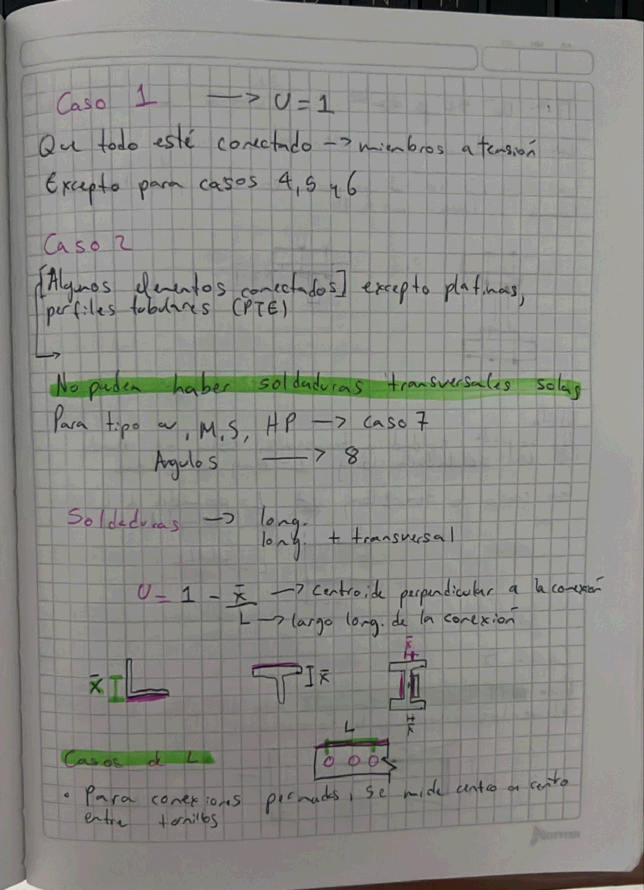 Caso 1 → U = 1
Que todo esté conectado → miembros a tensión
Excepto para casos 4, 5 y 6
Caso 2
[Algunos elementos conectados] excepto platinas,
perfiles tubulares (PTE)
No pueden haber soldaduras transversales solas
Para tipo w, M, S, HP → caso 7
Angulos → 8
Soldaduras → long.
long. + transversal
U = 1 - x̄ → centroide perpendicular a la conexión
L → largo long. de la conexión
x̄
x̄
x̄
x̄
L
Casos de L
• Para conexiones pernadas, se mide centro a centro
entre tornillos